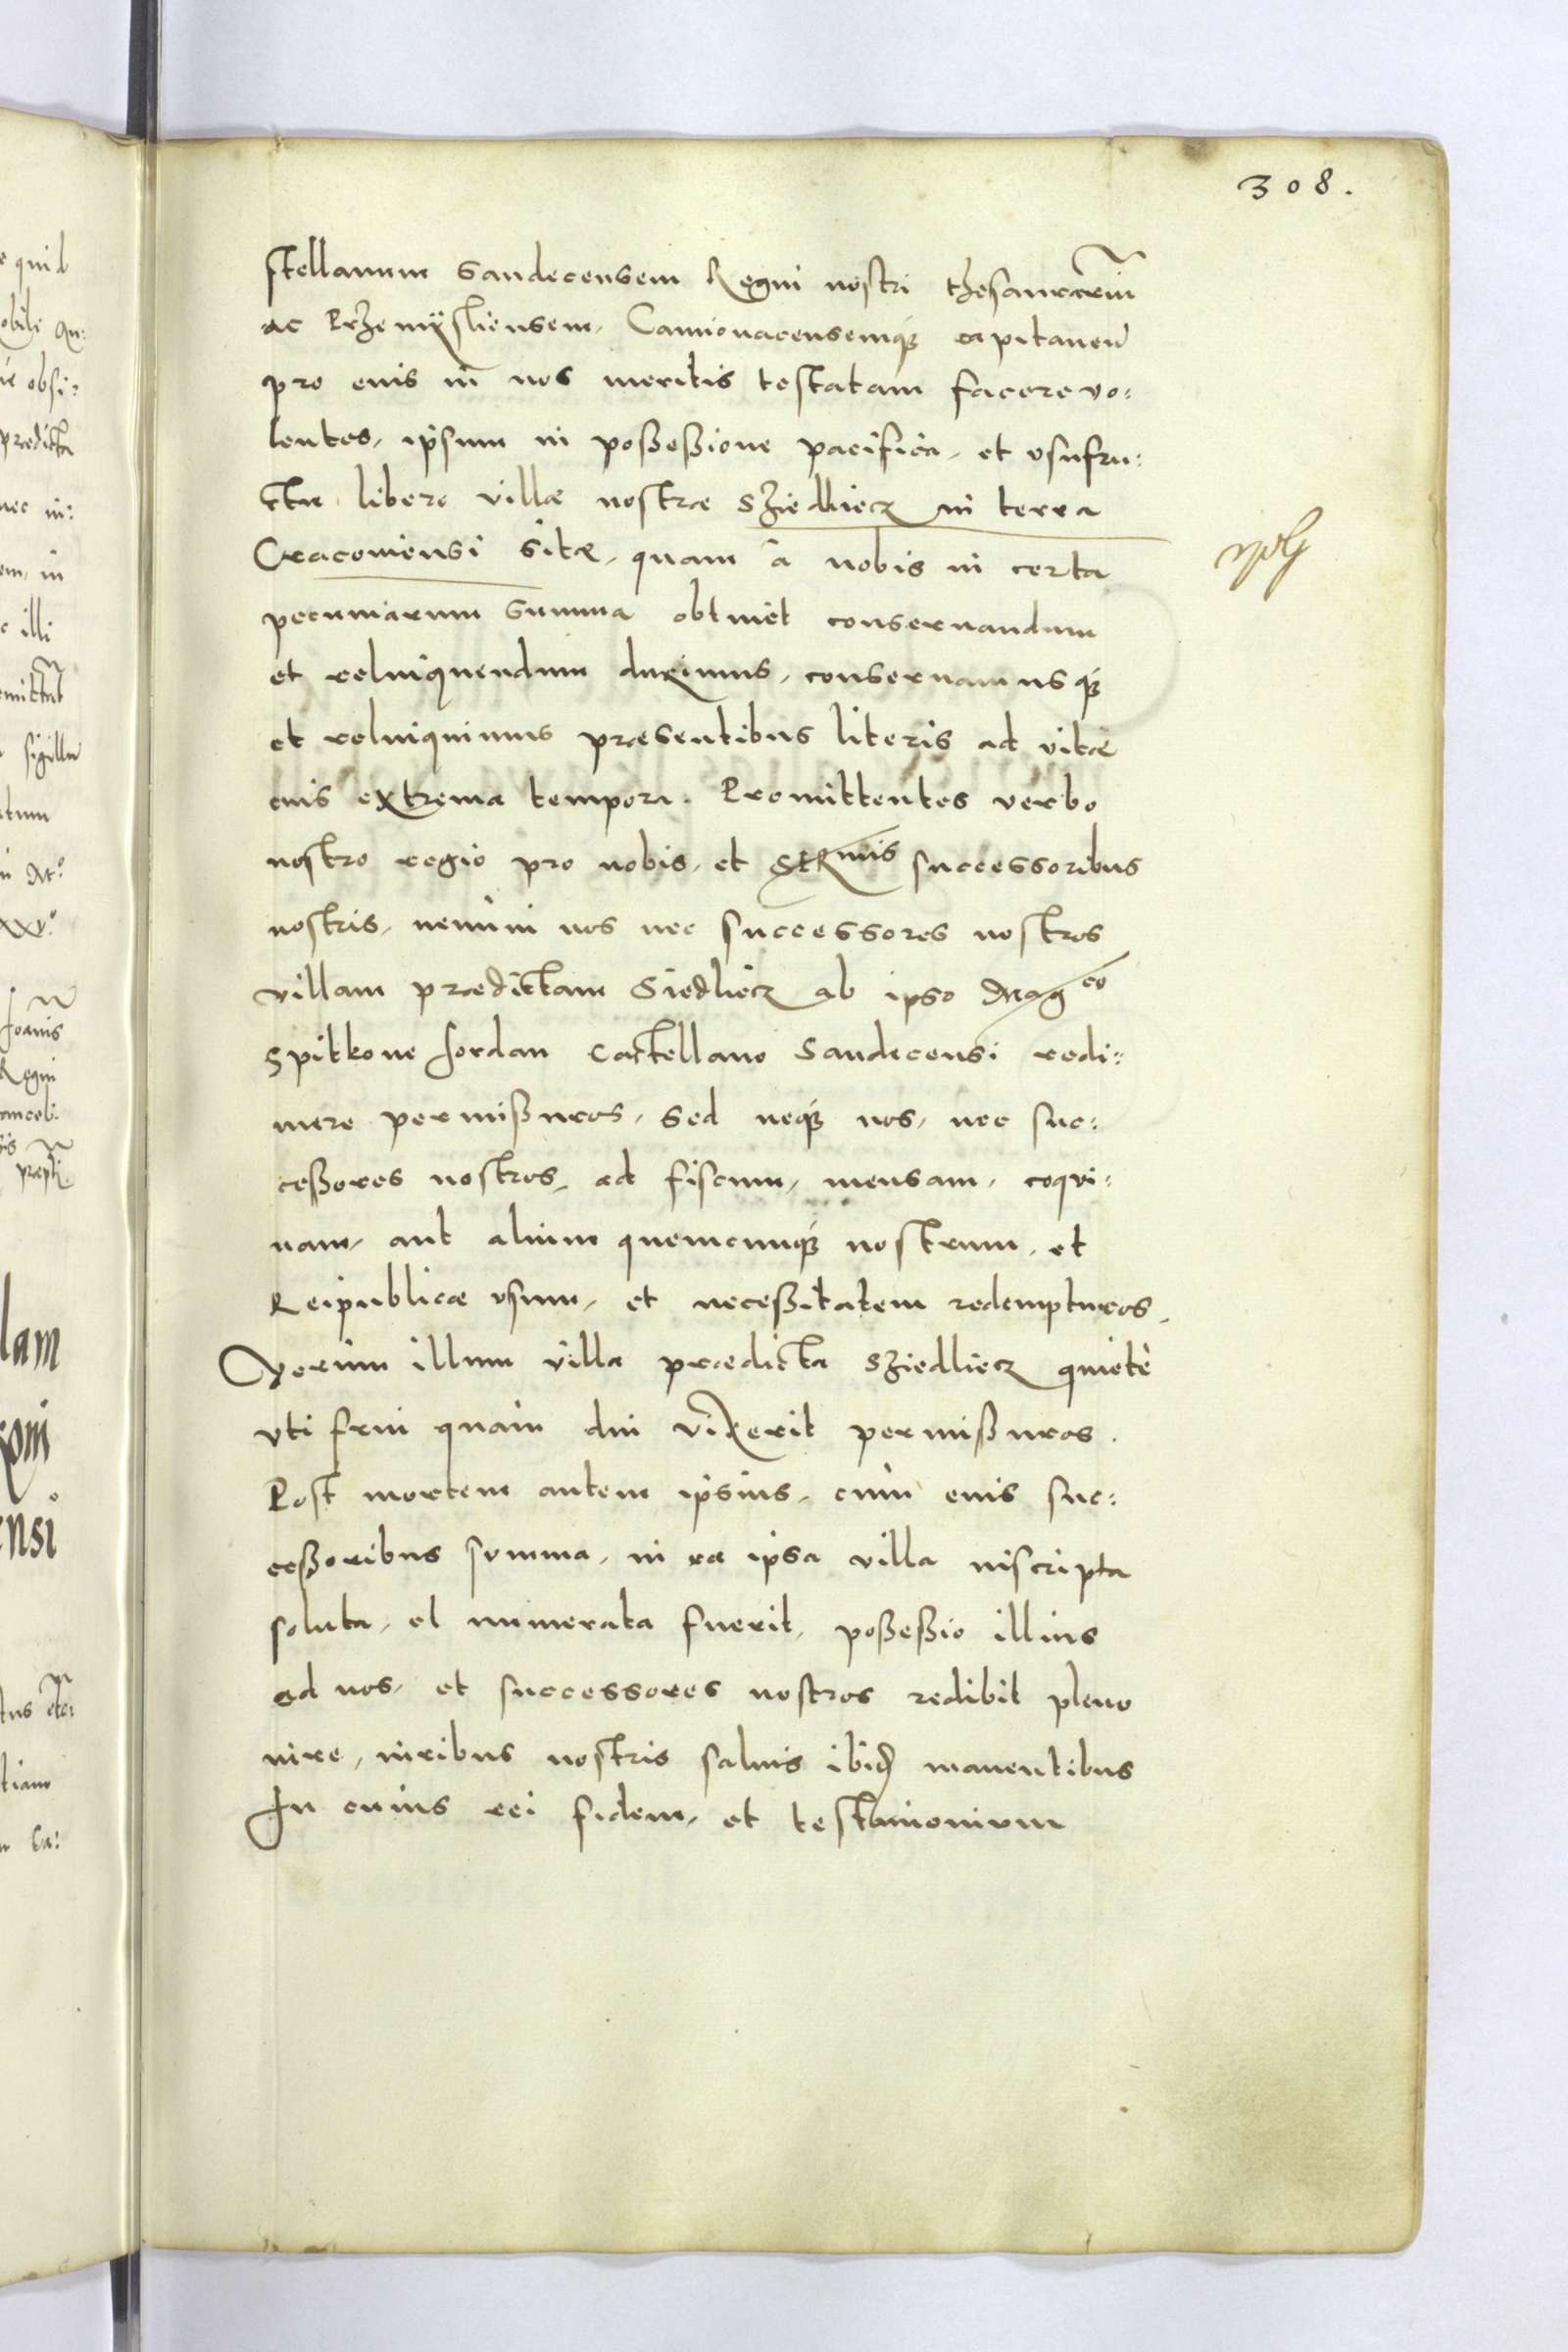 308.
stellanum Sandecensem Regni nostri thesaurariũ
ac Przemÿsliensem, Camionacensemq́ꝫ capitaneũ
pro euis in nos meritis testatam facere vo:
lentes, ipsum in poßeßione pacifica, et vsufru:
ctu libero villæ nostræ Sziedliecz in terra
Cracouiensi sitæ, quam à nobis in certa
pecuniarum summa obtinet conseruandum
et relinquendum duximus, conseruamusq́ꝫ
et relinquimus præsentibus literis ad vitæ
euis extrema tempora. Promittentes verbo
nostro regio pro nobis, et SERmis successoribus
nostris, nemini nos nec successores nostros
villam prædictam Siedliecz ab ipso Magco
Spitkone Jordan Castellano Sandecensi redi:
mere permißuros, sed neq́ꝫ nos, nec suc:
ceßores nostros, ad fiscum, mensam, coqui:
nam, aut alium quemcunq́ꝫ nostrum, et
Reipublicæ vsum, et neceßitatem redempturos,
Verùm illum villa prædicta Sziedliecz quietè
vti frui quàm diu vixerit permißuros.
Post mortem autem ipsius, cùm euis suc:
ceßoribus summa, in ea ipsa villa inscripta
soluta, et numerata fuerit, poßeßio illius
ad nos, et successores nostros redibit pleno
iure, iuribus nostris saluis ibid manentibus
In cuius rei fidem, et testimonium